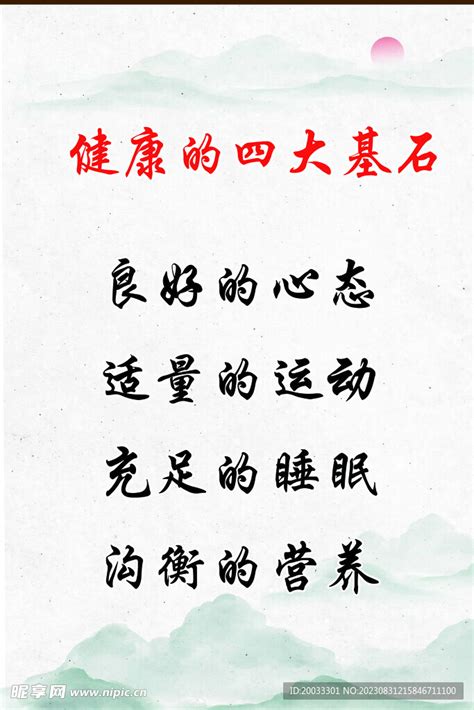 健康的四大基石
良好的心态
适量的运动
充足的睡眠
沟衡的营养
昵享网 www.nipic.cn
ID:20033301 NO:20230831215846711100